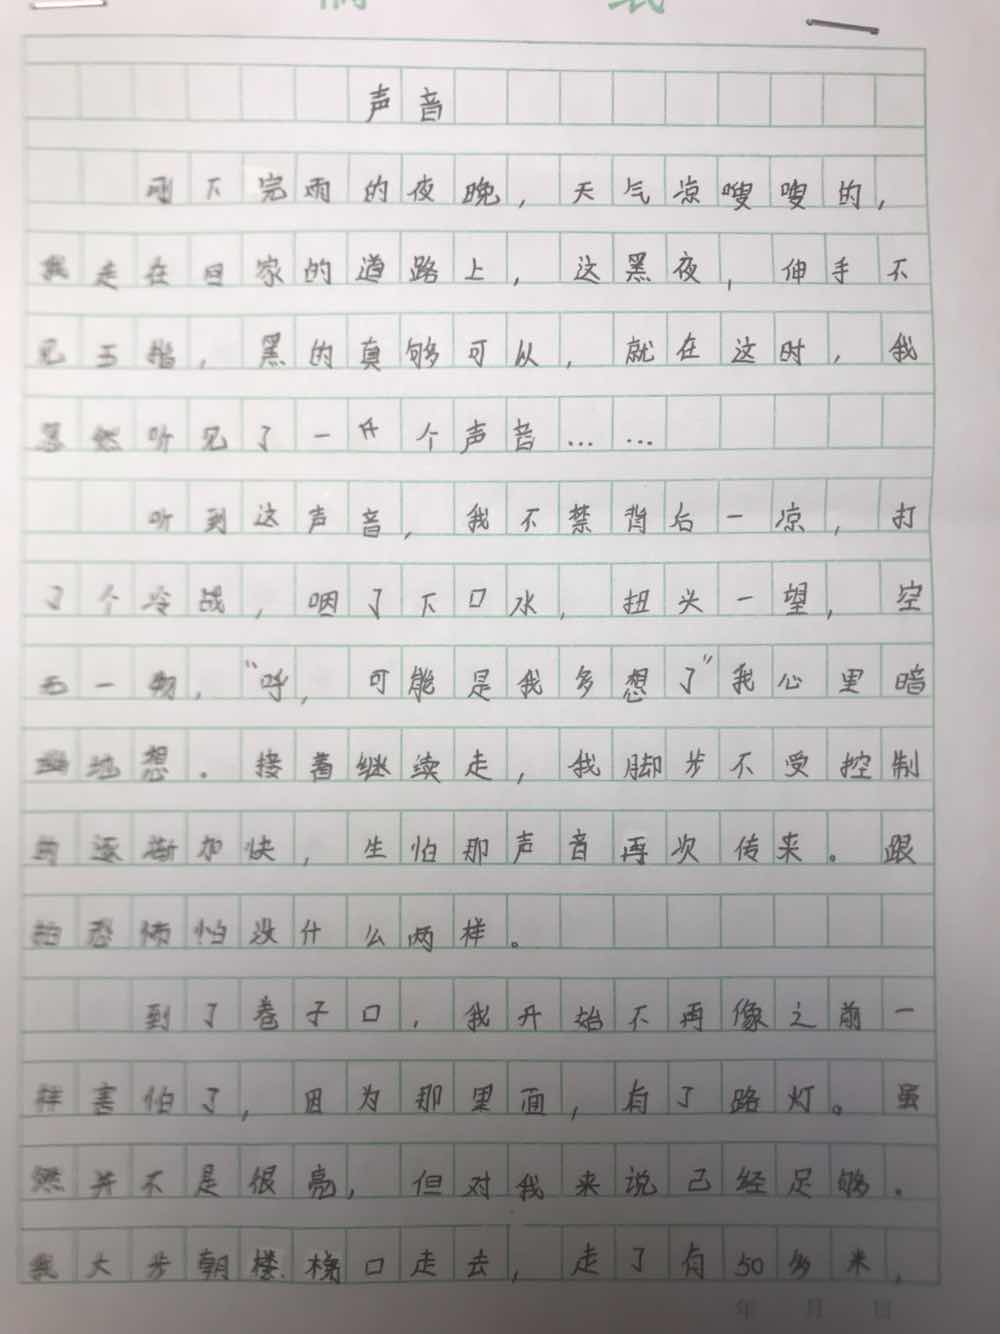 声音
刚下完雨的夜晚，天气凉嗖嗖的，
我走在回家的道路上，这黑夜，伸手不
见五指，黑的真够可以，就在这时，我
忽然听见了一个声音……
听到这声音，我不禁背后一凉，打
了个冷战，咽了下口水，扭头一望，空
无一物，“呼，可能是我多想了”我心里暗
暗地想。接着继续走，我脚步不受控制
的逐渐加快，生怕那声音再次传来。跟
恐怖怕没什么两样。
到了巷子口，我开始不再像之前一
样害怕了，因为那里面，有了路灯。虽
然并不是很亮，但对我来说己经足够。
我大步朝楼梯口走去，走了有50多米，
年 月 日